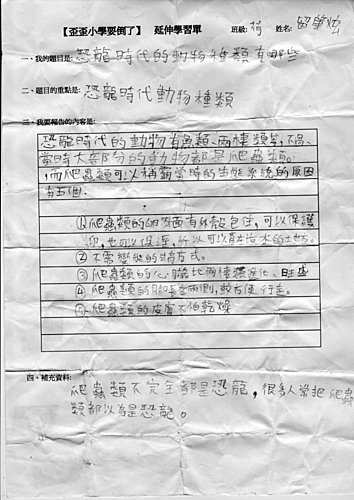 【歪歪小學要倒了】 延伸學習單 班級: 姓名:
一、我的題目是: 恐龍時代的動物種類有哪些
二、題目的重點是: 恐龍時代動物種類
三、我要報告的內容是:
恐龍時代的動物有魚類、兩棲類等,不過、
當時大部分的動物都是爬蟲類。
而爬蟲類可以稱霸當時的生態系統的原因
有五個.
①爬蟲類的卵外面有外殼包住,可以保護
卵,也可以保溼,所以可以在沒水的地方。
② 不需變態的 方式。
③ 爬蟲類的心臟比兩棲類進化、旺盛
④ 爬蟲類的腳長在兩側,較方便行走。
⑤ 爬蟲類的皮膚不怕乾燥
四、補充資料:
爬蟲類不完全都是恐龍,很多人常把爬蟲
類都以為是恐龍。